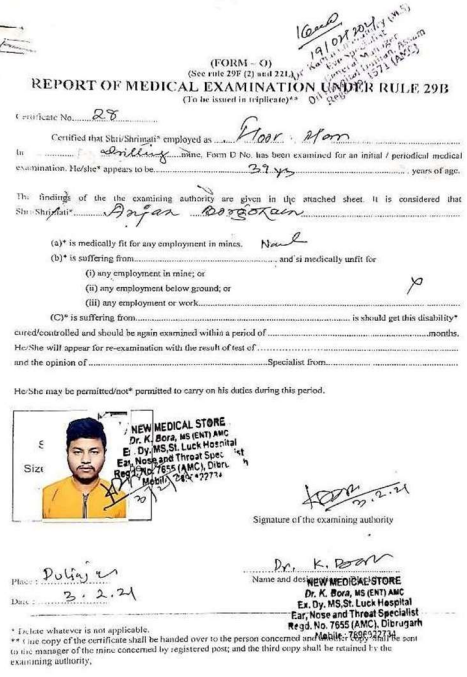 19/02/2021
(FORM – O)
(See rule 29F (2) and 22L)
REPORT OF MEDICAL EXAMINATION UNDER RULE 29B
(To be issued in triplicate)**
Certificate No. 28
Certified that Shri/Shrimati* employed as Floor Man
In drilling mine, Form D No. has been examined for an initial / periodical medical
examination. He/she* appears to be 39 yrs years of age.
The findings of the the examining authority are given in the attached sheet. It is considered that
Shri/Shrimati* Anjan Borgohain
(a)* is medically fit for any employment in mines.
(b)* is suffering from and si medically unfit for
(i) any employment in mine; or
(ii) any employment below ground; or
(iii) any employment or work
(C)* is suffering from is should get this disability*
cured/controlled and should be again examined within a period of months.
He/She will appear for re-examination with the result of test of
and the opinion of Specialist from
He/She may be permitted/not* permitted to carry on his duties during this period.
NEW MEDICAL STORE
Dr. K. Bora, MS (ENT) AMC
Dy. MS, St. Luck Hospital
Ear, Nose and Throat
Regd. No. 7655 (AMC),
3.2.21
Signature of the examining authority
Dr. K. Bora
Place : Duliajan
Name and
Date : 3.2.21
NEW MEDICAL STORE
Dr. K. Bora, MS (ENT) AMC
Ex. Dy. MS, St. Luck Hospital
Ear, Nose and Throat Specialist
Regd. No. 7655 (AMC), Dibrugarh
Mobile: 7896922734
* Delete whatever is not applicable.
** One copy of the certificate shall be handed over to the person concerned and copy shall be sent
to the manager of the mine concerned by registered post; and the third copy shall be retained by the
examining authority.